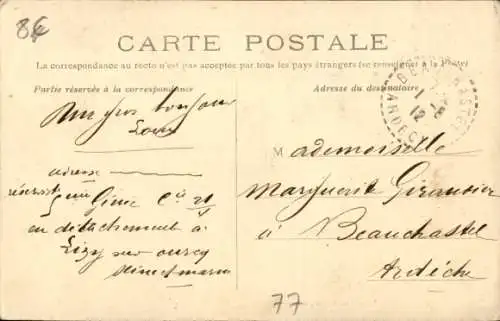 8€
CARTE POSTALE
La correspondance au recto n'est pas acceptée par tous les pays étrangers (se renseigner à la Poste)
Partie réservée à la correspondance
Adresse du destinataire
ARDECHE
Un gros bonjour
Louis
adresse
Génie Cie 21
en détachement à
Lizy sur ourcq
Seine et marne
Mademoiselle
Marguerite Giraudier
à Beauchastel
Ardèche
77